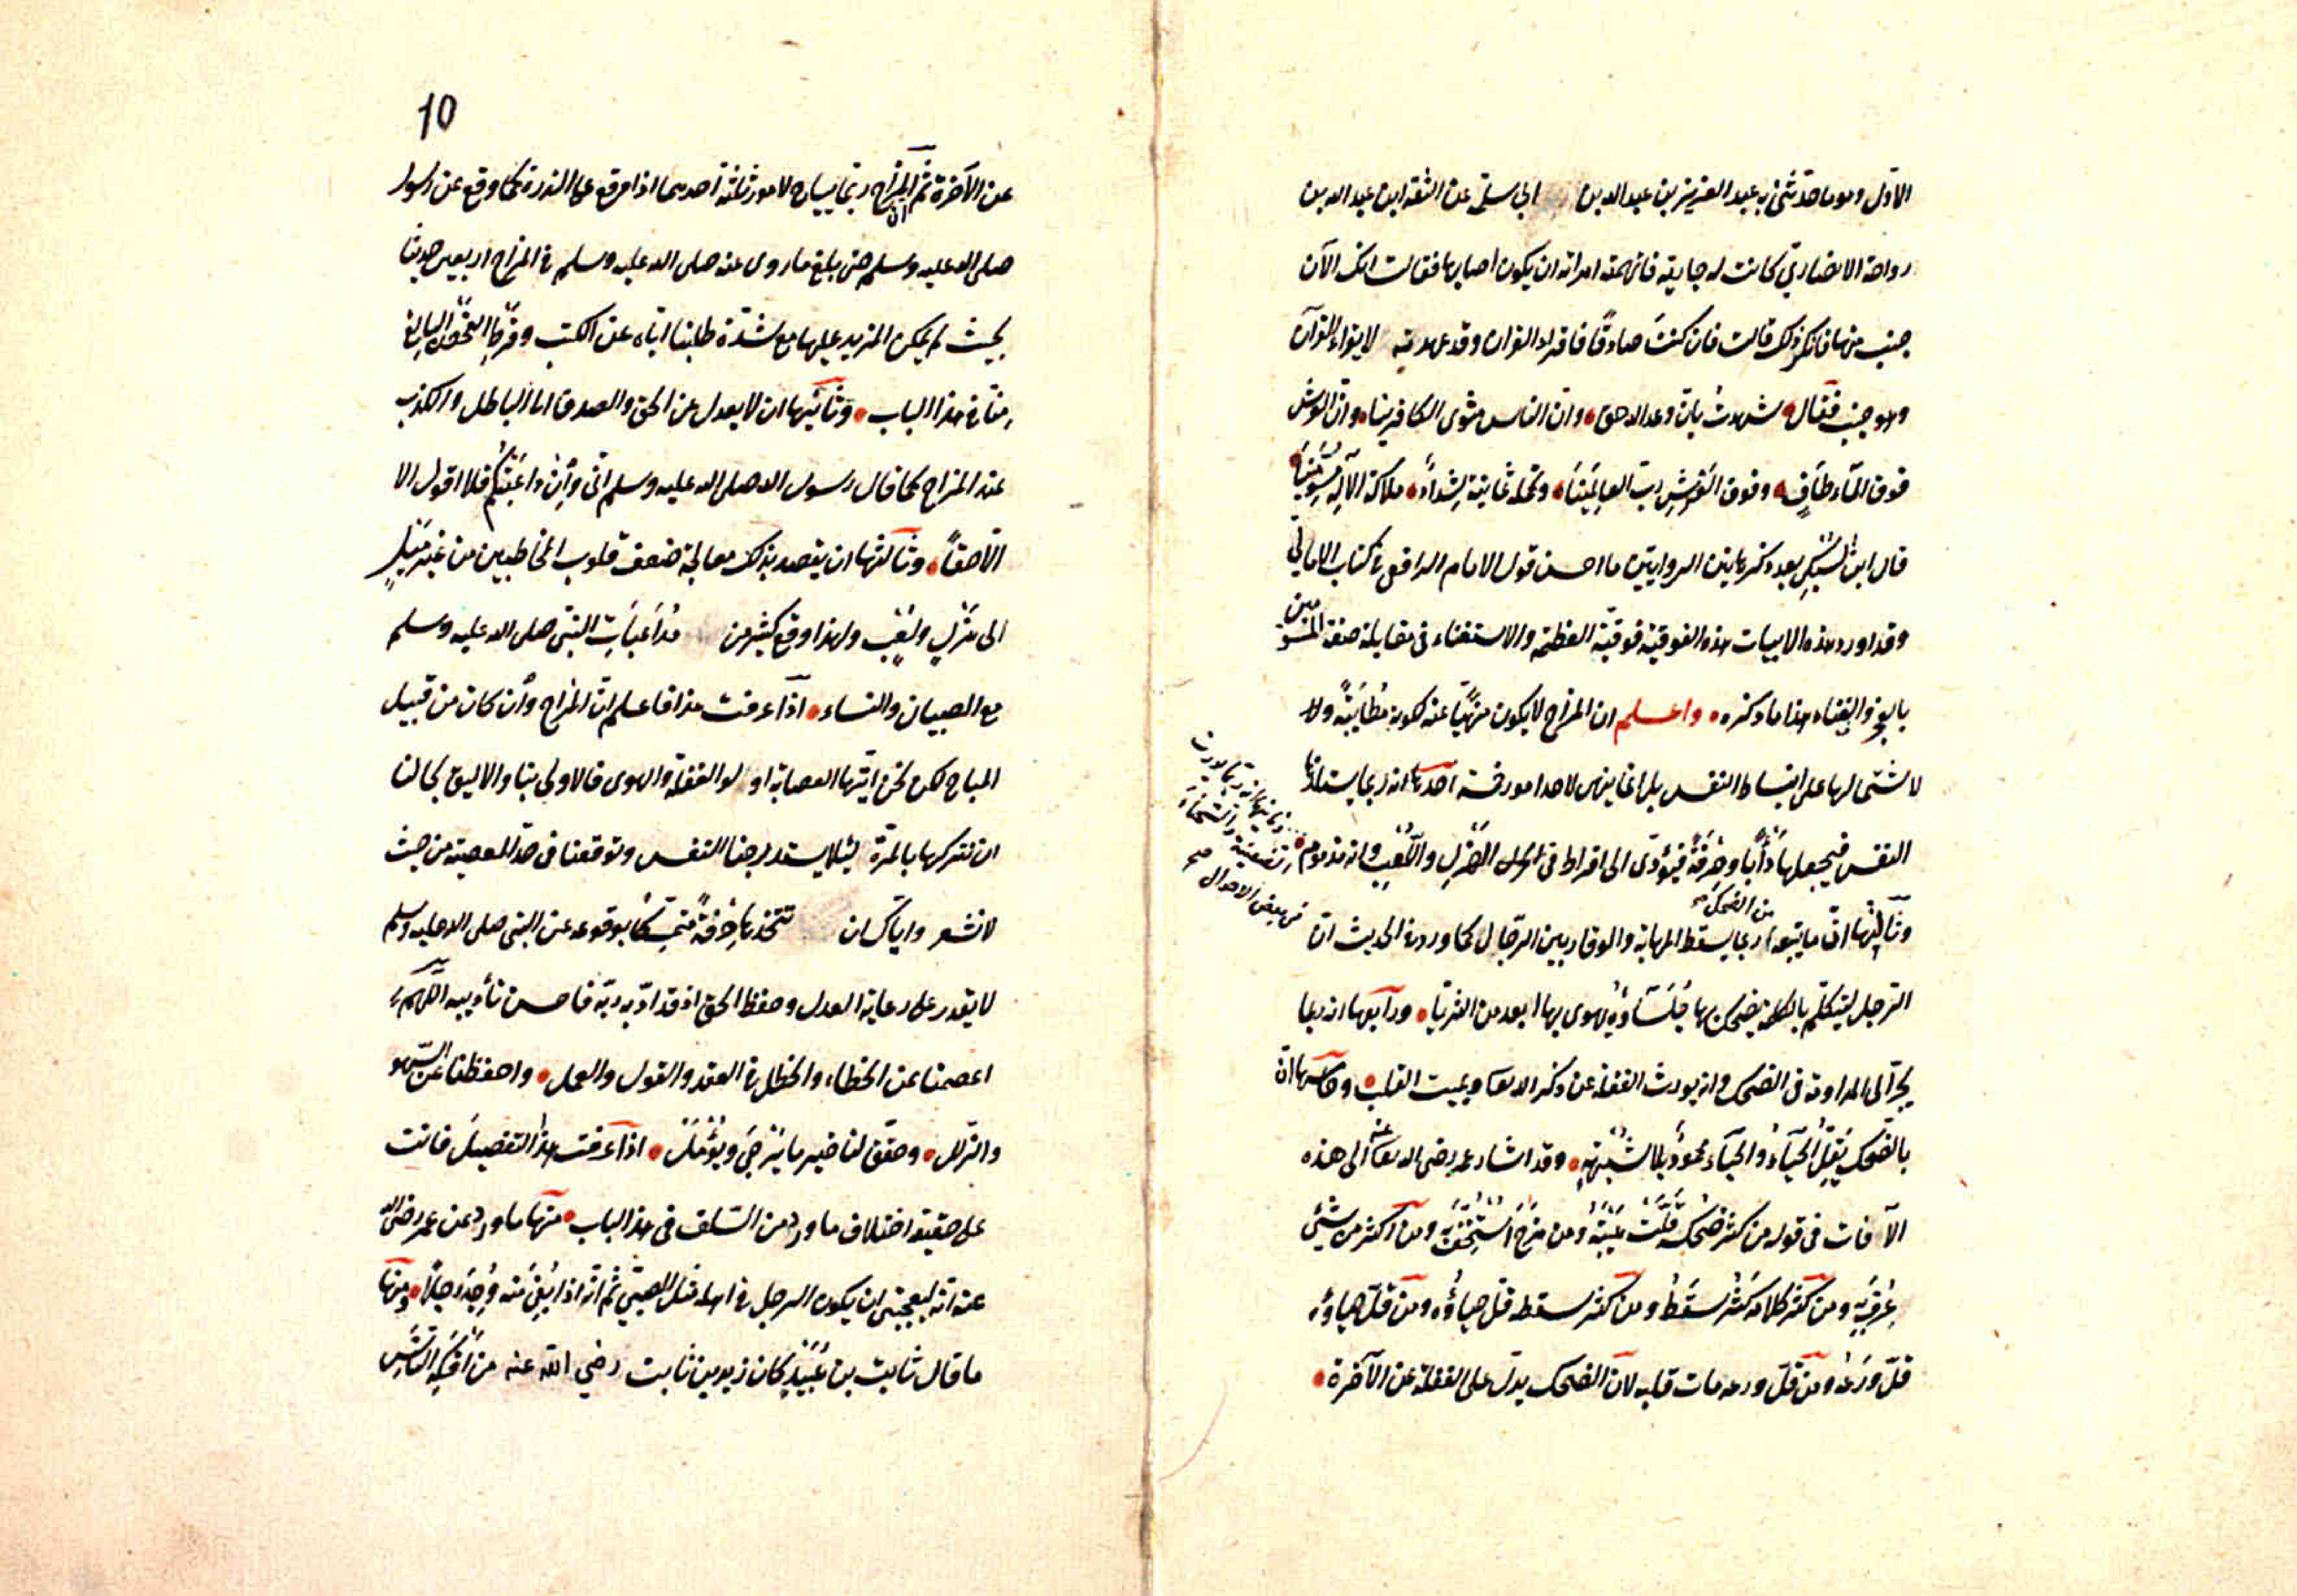 الاول وهو ما حدثني به عبد العزيز بن عبد الله بن ابي سلمة عن الثقة ابن عبد الله بن
رواحة الانصاري كانت له جارية فاتهمته امراته ان يكون اصابها فقالت انك الآن
جنب منها فانكر ذلك قالت فان كنتَ صادقًا فاقراء القران وقد عهدته لا يقراء القرآن
وهو جنب فقال شهدتُ بانّ وعد الله حق وان النار مثوى الكافرينا وانّ العرش
فوق المآء طَافٍ وفوق العَرْشِ ربّ العالَمِينَا وتحمله ثمانية شِدادٌ ملائكة الآلٰه مُسَوِّمِيْنَا
قال ابن السُّبْكِيِ بعد ذكر هاتين الروايتين ما احسن قول الامام الرافعي في كتاب الامالي
وقد اورد هذه الابيات هذه الفوقية فوقية العظمة والاستغناء في مقابلة صفة الموسومين
بالعجز والفناء هذا ما ذكره واعلم ان المزاح لا يكون منهيًّا عنه لكونه مُطَايَبَةً ولا
لاشتمالها على انبساط النفس بل انما ينهى لاحد امور خمسة احدها انه ربما يستلذها
النفس فيجعلها دَأْبًا وحِرْفَةً فيؤدّى الى افراط في الهَزْلِ والَّلعِبِ وانه مذموم
وثانيها انه ربما يورث
الضغينة والشحناء
في بعض الاحوال صح
وثَالِثُها انّ ما يتبعه من الضحك ربما يسقط المهابة والوقار بين الرّجال كما ورد في الحديث انّ
الرّجل ليتكلّم بالكلمة يضحك بها جُلَسَآؤُه يهوى بها ابعد من الثريّا ورابعها انه ربما
يجرّ الى المداومة في الضحك وانه يورث الغفلة عن ذكر الله تعالى ويميت القلب وخامسها انّ
بالضحك يَقِلُّ الحَيَآءُ والحَيَآء محمودٌ بلا شُبْهَةٍ وقد اشار عمر رضى الله تعالى عنه الى هذه
الآفات في قوله من كثر ضحكه قَلَّتْ هَيْبَتُه ومن مَزَحَ اُسْتُخِفَّ به ومن اكثر من شيئٍ
عُرِفَ بِه ومن كثر كلامه كَثُرَ سَقَطُه ومن كثر سقطه قلّ حياؤُه ومن قلّ حياؤه
قلّ وَرَعُه ومن قلّ ورعه مات قلبه لانّ الضحك يدلّ على الغفلة عن الآخرة
10
عن الآخرة ثم ان المزاح ربّما يباح لامور ثلثة احدها اذا وقع على الندرة كما وقع عن رسول
صلى الله عليه وسلم حتى بلغ ما روى عنه صلى الله عليه وسلم في المزاح اربعين حديثا
بحيث لم يمكن المزيد عليها مع شدّة طلبنا ايّاه عن الكتب وفرط التفحّص البالغ
منّا في هذا الباب وثانيها ان لا يعدل عن الحق والصدق الى الباطل والكذب
عند المزاح كما قال رسول الله صلى الله عليه وسلم انّى وأنِ دَاعَبْتُكُم فلا اقول الا
الّا حقاً وثالثها ان يقصد بذلك معالجة ضعف قلوب المخاطبين من غير مَيْلٍ
الى هَزْلٍ ولَعِبٍ ولهذا وقع كثير من مُدَاعَبَاتِ النبّى صلى الله عليه وسلم
مع الصبيان والنساء اذا عرفت هذا فاعلم انّ المزاح وأن كان من قبيل
المباح لكن نحن ايتها العصابة اولو الغفلة والهوى فالاولى بنا والاليق بحالنا
ان نتركها بالمرّة لئلا يستدرجنا النفس وتوقعنا في حدّ المعصية من حيث
لا نشعر وايّاك ان تتخذها حِرْفَةً مُتَمَسِّكًا بوقوعه عن النبى صلى الله عليه وسلم
لا يقدر على رعاية العدل وحفظ الحق اذ قد ادّبه ربّه فاحسن تأديبه اللّهمّ
اعصمنا عن الخطاء والخطل في العقد والقول والعمل واحفظنا عن السّهو
والزلل وحقّق لنا خير ما يُرْجَىٰ ويُؤْمَلُ اذا عرفت هذا التفصيل فانت
على حقيقة اختلاف ما ورد من السّلف في هذا الباب منها ما ورد عن عمر رضى الله
عنه انّه ليعجبنى ان يكون الرجل في اهله مثل الصبّى ثم انّه اذا بُغِىَ منه وُجِدَ رجلاً ومنها
ما قال ثابت بن عُبَيْدٍ كان زيد بن ثابت رضي الله عنه من اَفْكَهِ النَّاسِ